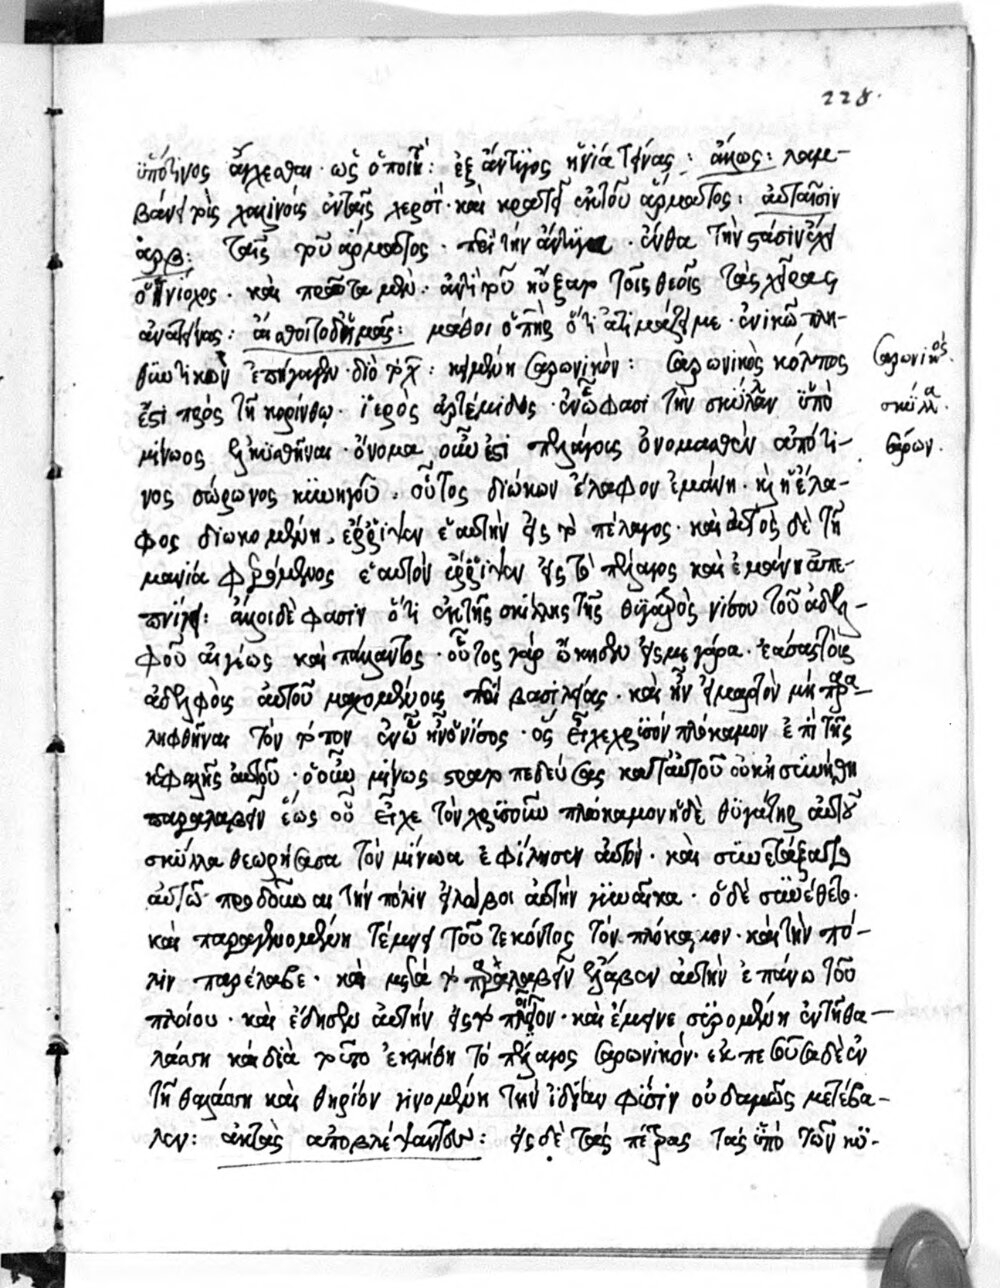 228.
ὑπό τινος ἄγχεσθαι· ὡς ὁποῖ: ἐξ ἄντυγος ἡνία τείνας: ἄλλως: λαμ-
βάνει τοῖς χαλινοῖς ἐν ταῖς χερσί· καὶ κρατεῖ ἐκ τοῦ ἅρματος: αὐταῖσιν
ἀρβ: ταῖς τοῦ ἅρματος· περὶ τὴν ἄντυγα· ἔνθα τὴν στάσιν ἔχει
ὁ ἡνίοχος· καὶ πρῶτα μὲν· ἀντὶ τοῦ ηὔξατο τοῖς θεοῖς τὰς χεῖρας
ἀνατείνας: αἴσθοιτο δ' ἡμᾶς: μάθοι ὁ πατὴρ ὅτι ἀτιμάζει με· ἐνικῶ πλη-
θυντικὸν ἐπήγαγεν· διὸ τὸ χ: κείμενη σαρωνικόν: σαρωνικὸς κόλπος
ἐστὶ πρὸς τῇ κορίνθῳ· ἱερὸς ἀρτέμιδος· ἐν ᾧ φασὶ τὴν σκύλλαν ὑπὸ
μίνωος ἑλκυσθῆναι· ὄνομα οὖν ἐστὶ πελάγους ὀνομασθὲν ἀπό τι-
νος σάρωνος κυνηγοῦ· οὗτος διώκων ἔλαφον ἐμάνη· καὶ ἡ ἔλα-
φος διωκομένη, ἔρριψεν ἑαυτὴν εἰς τὸ πέλαγος· καὶ αὐτὸς δὲ τῇ
μανίᾳ φερόμενος ἑαυτὸν ἔρριψεν εἰς τὸ πέλαγος καὶ ἐμάνη ἀπε-
πνίγη: ἄλλοι δὲ φασὶν ὅτι ἐκ τῆς σκύλλης τῆς θυγατρὸς νίσου τοῦ ἀδελ-
φοῦ αἰγέως καὶ πάλαντος· οὗτος γὰρ ᾤκησεν εἰς μέγαρα· ἐάσας τοῖς
ἀδελφοῖς αὐτοῦ μαχομένοις περὶ βασιλείας· καὶ ἦν εἱμαρτὸν μὴ παρα-
ληφθῆναι τὸν τόπον ἐν ᾧ ἦν ὁ νίσος· ὃς εἶχε χρυσὸν πλόκαμον ἐπὶ τῆς
κεφαλῆς αὐτοῦ· ὁ οὖν μίνως στρατοπεδεύσας κατ' αὐτοῦ οὐκ ἠδυνήθη
παραλαβεῖν ἕως οὗ εἶχε τὸν χρυσοῦν πλόκαμον ἡ δὲ θυγάτηρ αὐτοῦ
σκύλλα θεωρήσασα τὸν μίνωα ἐφίλησεν αὐτόν· καὶ συνετάξατο
αὐτῷ προδοῦναι τὴν πόλιν εἰ λάβοι αὐτὴν γυναῖκα· ὁ δὲ συνέθετο·
καὶ παραγενομένη τέμνει τοῦ τεκόντος τὸν πλόκαμον· καὶ τὴν πό-
λιν παρέλαβε· καὶ μετὰ τὸ παραλαβεῖν ἔλαβεν αὐτὴν ἐπάνω τοῦ
πλοίου· καὶ ἔδησεν αὐτὴν εἰς τὸ πλοῖον· καὶ ἔμεινε συρομένη ἐν τῇ θα-
λάσσῃ καὶ διὰ τοῦτο ἐκλήθη τὸ πέλαγος σαρωνικόν· ἐκπεσοῦσα δὲ ἐν
τῇ θαλάσσῃ καὶ θηρίον γινομένη τὴν ἰδίαν φύσιν οὐδαμῶς μετέβα-
λεν: ἀκτὰς ἀποβλέψαντα: εἰς δὲ τὰς πέτρας τὰς ὑπὸ τῶν κυ-
σαρωνικός.
σκύλλα.
σάρων.